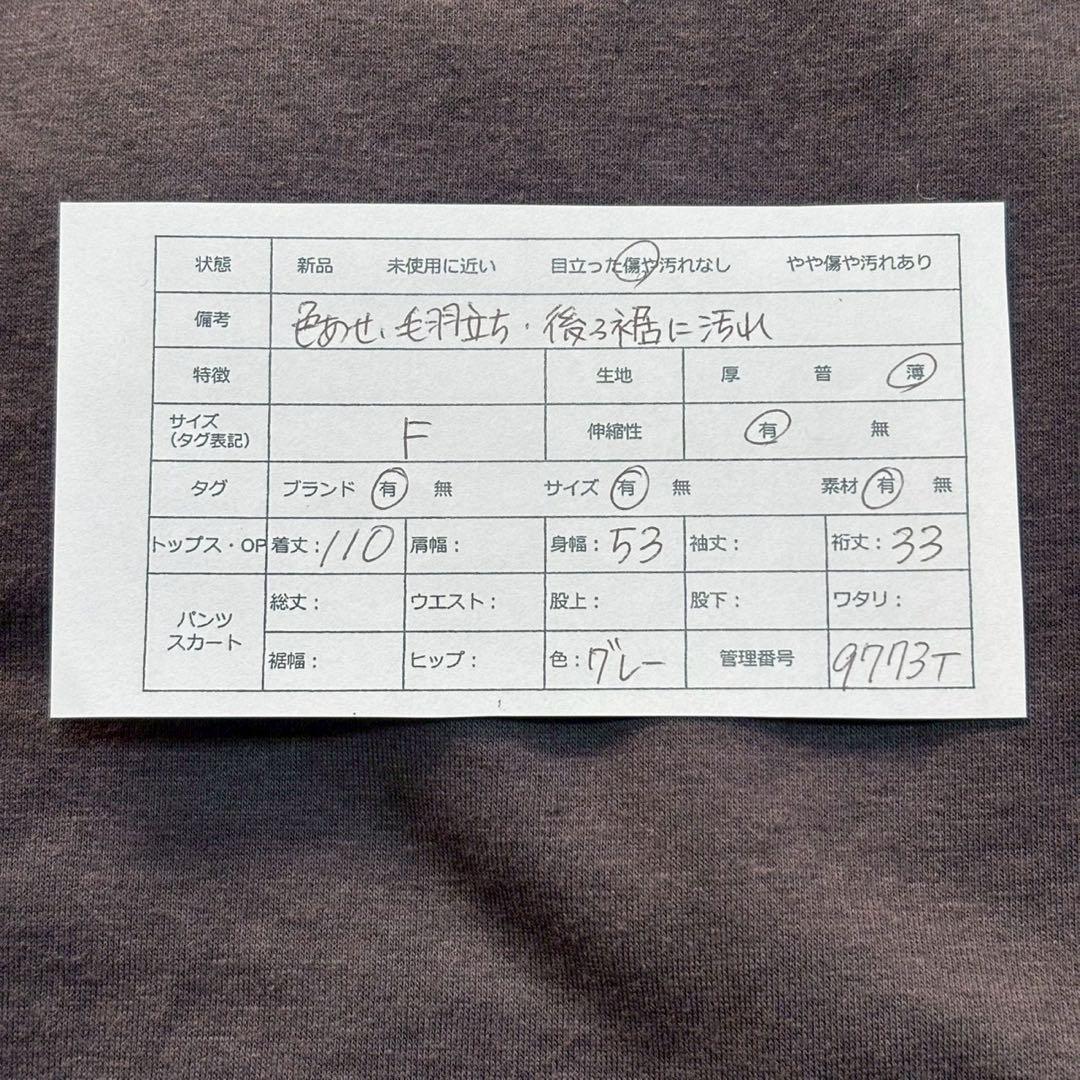 状態 新品 未使用に近い 目立った傷や汚れなし やや傷や汚れあり
備考 色あせ、毛羽立ち・後ろ裾に汚れ
特徴 生地 厚 普 薄
サイズ
(タグ表記) F 伸縮性 有 無
タグ ブランド 有 無 サイズ 有 無 素材 有 無
トップス・OP 着丈:110 肩幅: 身幅:53 袖丈: 裄丈:33
パンツ
スカート 総丈: ウエスト: 股上: 股下: ワタリ:
裾幅: ヒップ: 色:グレー 管理番号 9773T